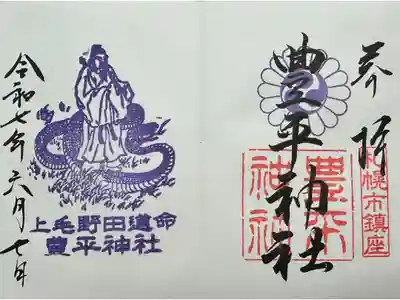 奉拝
札幌市鎮座
豊平神社
豊平神社
上毛野田道命
豊平神社
令和七年六月七日